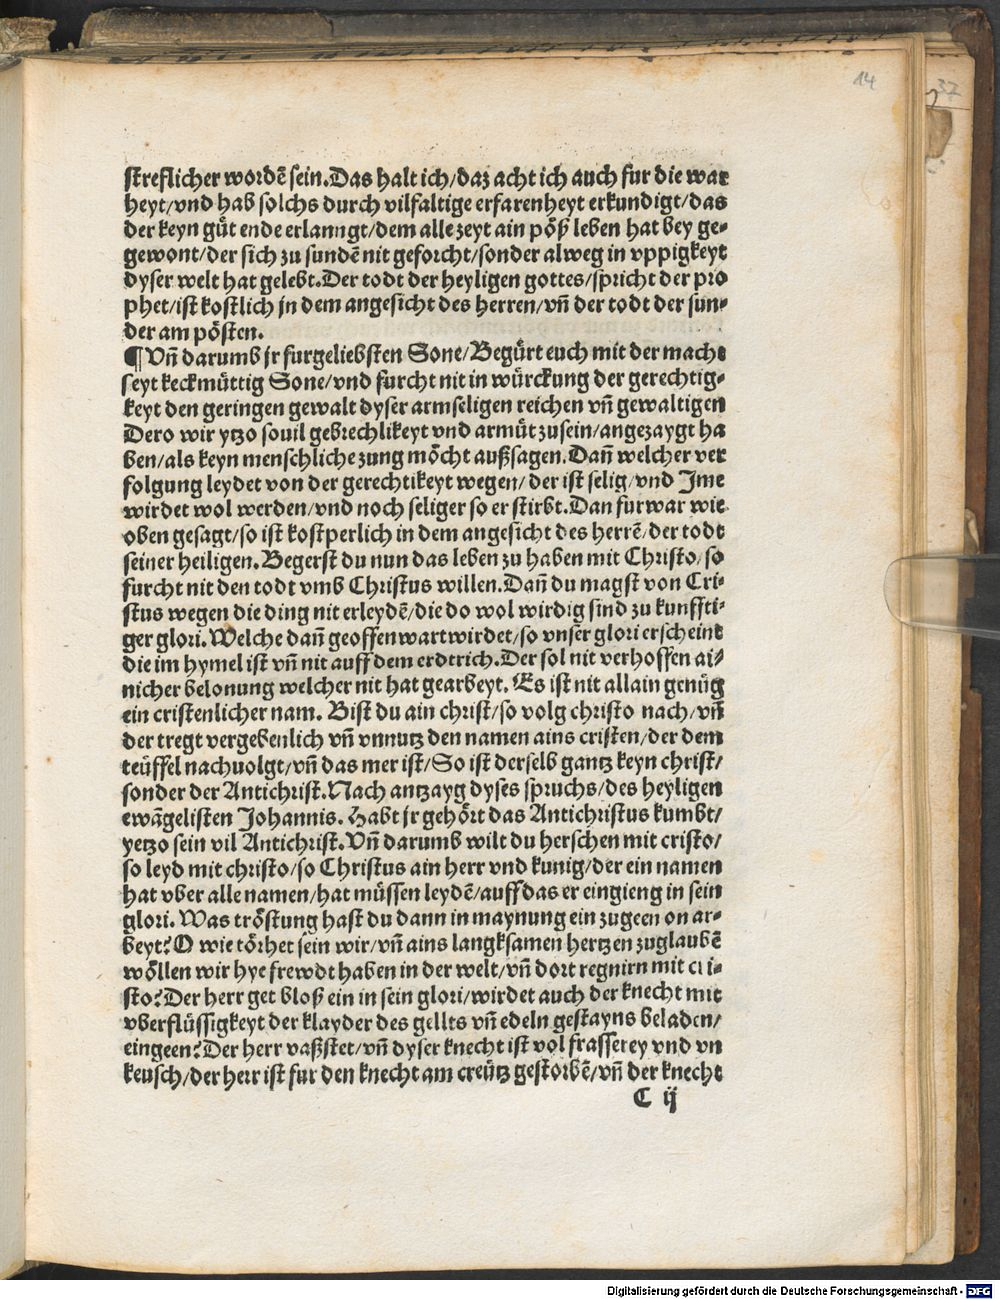 14
37
streflicher wordē sein. Das halt ich/daz acht ich auch fur die war
heyt/vnd hab solchs durch vilfaltige erfarenheyt erkundigt/das
der keyn gůt ende erlanngt/dem alle zeyt ain pöß leben hat bey ge⸗
gewont/der sich zu sundē nit geforcht/sonder alweg in vppigkeyt
dyser welt hat gelebt. Der todt der heyligen gottes/spricht der pro
phet/ist kostlich jn dem angesicht des herren/vn̄ der todt der sun⸗
der am pösten.
¶ Vn̄ darumb jr furgeliebsten Sone/Begürt euch mit der macht
seyt keckmüttig Sone/vnd furcht nit in würckung der gerechtig⸗
keyt den geringen gewalt dyser armseligen reichen vn̄ gewaltigen
Dero wir ytzo souil gebrechlikeyt vnd armůt zusein/angezaygt ha
ben/als keyn menschliche zung möcht außsagen. Dan̄ welcher ver
folgung leydet von der gerechtikeyt wegen/ der ist selig/vnd Jme
wirdet wol werden/vnd noch seliger so er stirbt. Dan furwar wie
oben gesagt/so ist kostperlich in dem angesicht des herrē/der todt
seiner heiligen. Begerst du nun das leben zu haben mit Christo/so
furcht nit den todt vmb Christus willen. Dan̄ du magst von Cri⸗
stus wegen die ding nit erleydē/die do wol wirdig sind zu kunffti⸗
ger glori. Welche dan̄ geoffenwart wirdet/so vnser glori erscheint
die im hymel ist vn̄ nit auff dem erdtrich. Der sol nit verhoffen ai⸗
nicher belonung welcher nit hat gearbeyt. Es ist nit allain genůg
ein cristenlicher nam. Bist du ain christ/so volg christo nach/vn̄
der tregt vergebenlich vn̄ vnnutz den namen ains cristen/der dem
teüffel nachuolgt/vn̄ das mer ist/So ist derselb gantz keyn christ/
sonder der Antichrist. Nach antzayg dyses spruchs/des heyligen
ewāgelisten Johannis. Habt jr gehört das Antichristus kumbt/
yetzo sein vil Antichrist. Vn̄ darumb wilt du herschen mit cristo/
so leyd mit christo/so Christus ain herr vnd kunig/der ein namen
hat vber alle namen/hat müssen leydē/auff das er eingieng in sein
glori. Was tröstung hast du dann in maynung ein zugeen on ar⸗
beyt? O wie törhet sein wir/vn̄ ains langksamen hertzen zuglaubē
wöllen wir hye frewdt haben in der welt/vn̄ dort regnirn mit cri⸗
sto? Der herr get bloß ein in sein glori/wirdet auch der knecht mit
vberflüssigkeyt der klayder des gellts vn̄ edeln gestayns beladen/
eingeen? Der herr vaßstet/vn̄ dyser knecht ist vol frasserey vnd vn
keusch/der herr ist fur den knecht am creütz gestorbē/vn̄ der knecht
C ij
Digitalisierung gefördert durch die Deutsche Forschungsgemeinschaft - DFG